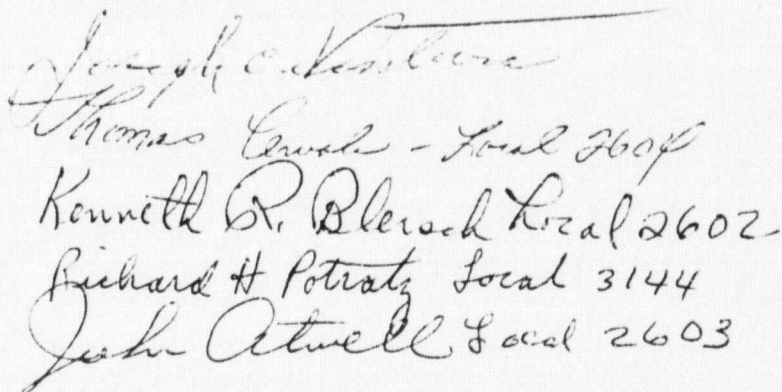 Joseph C.
Thomas - Local 2604
Kenneth R. Blersch Local 2602
Richard H Potratz Local 3144
John Atwell Local 2603